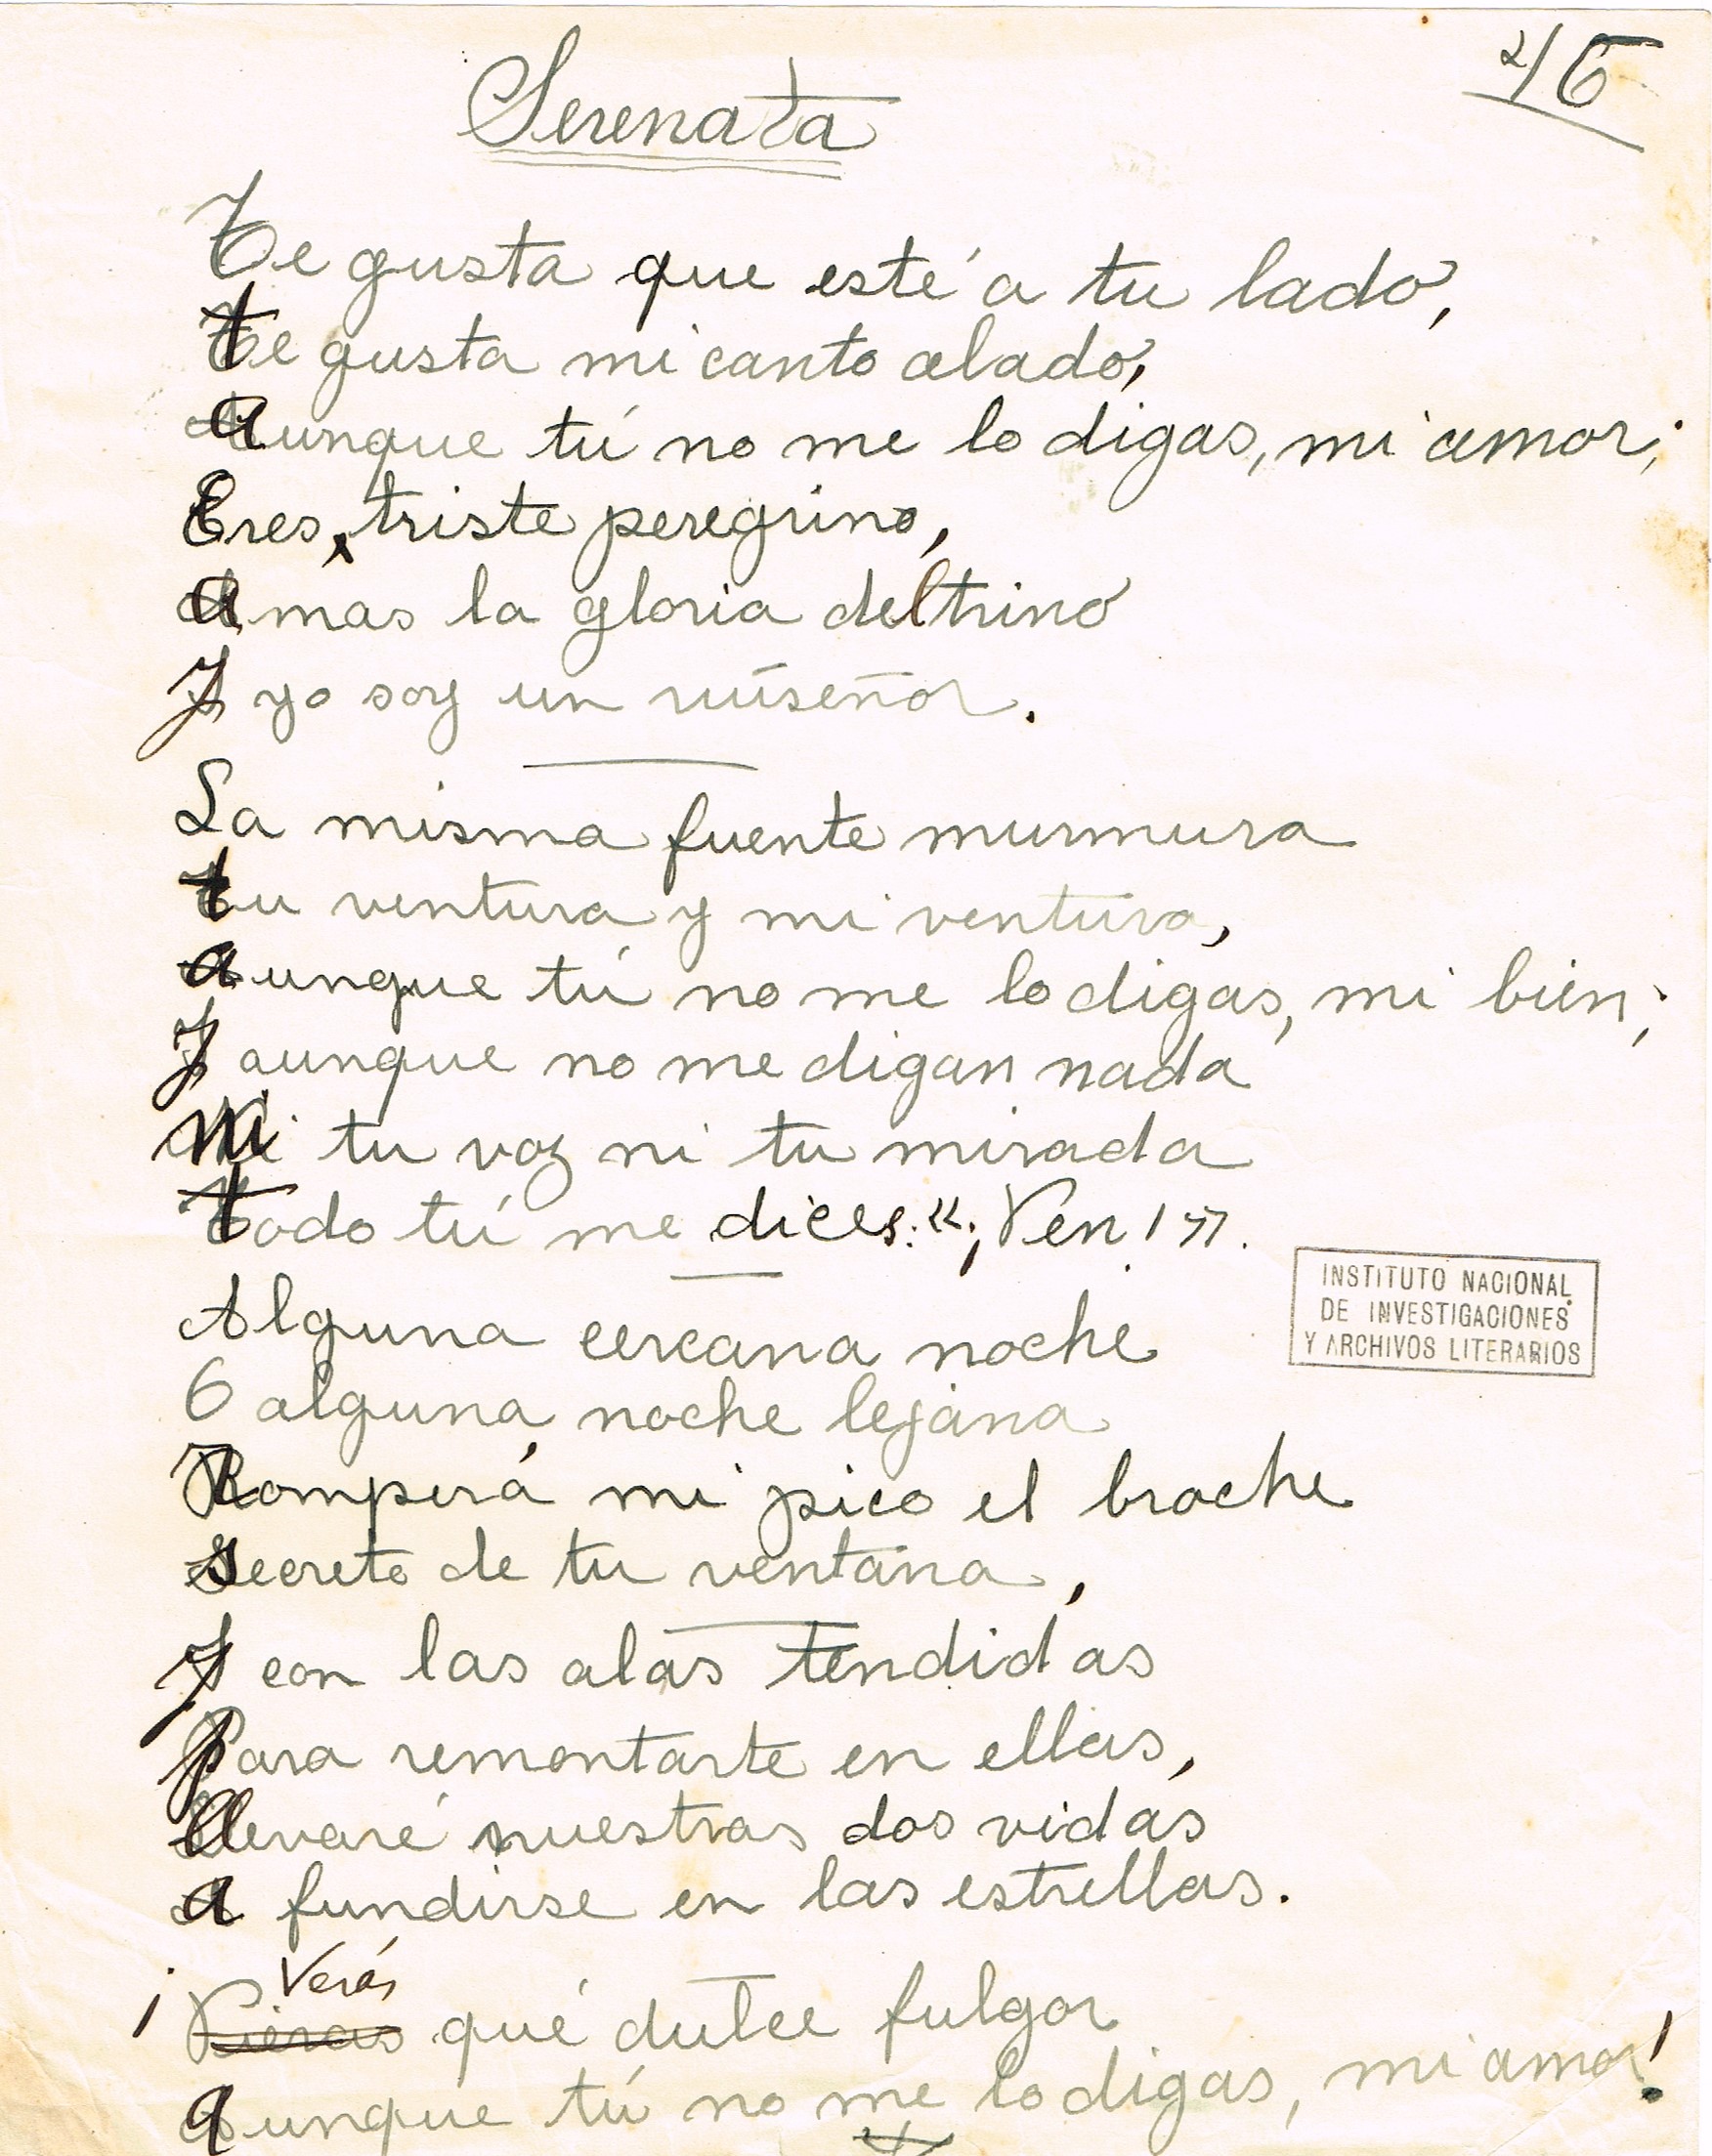 Serenata
Te gusta que esté a tu lado,
te gusta mi canto alado,
aunque tú no me lo digas, mi amor;
Eres, triste peregrino,
amas la gloria del trino
y yo soy un ruiseñor.
La misma fuente murmura
tu ventura y mi ventura,
aunque tú no me lo digas, mi bien;
y aunque no me digan nada
ni tu voz ni tu mirada
todo tú me dices: "¡Ven!".
Alguna cercana noche
ó alguna noche lejana
Romperá mi pico el broche
secreto de tu ventana,
y con las alas tendidas
para remontarte en ellas,
llevaré nuestras dos vidas
a fundirse en las estrellas.
Verás
¡ Vieras qué dulce fulgor
aunque tú no me lo digas, mi amor!
INSTITUTO NACIONAL
DE INVESTIGACIONES
Y ARCHIVOS LITERARIOS